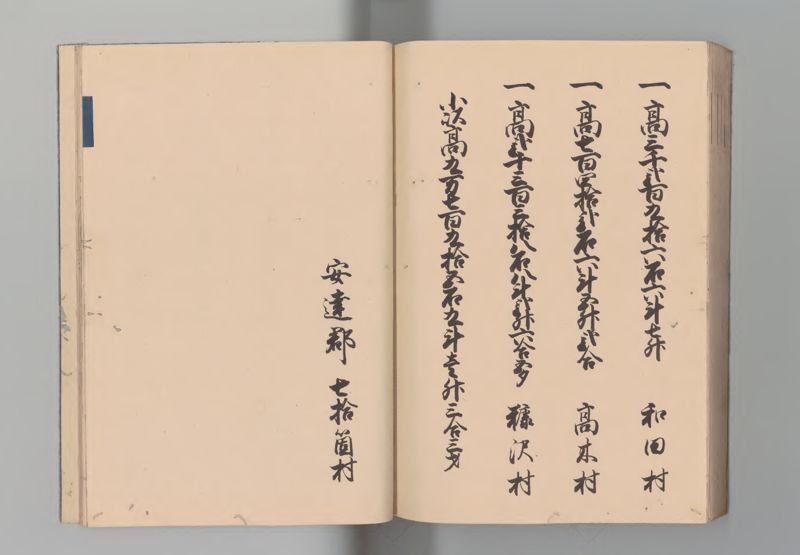 一高三千弐百九拾六石六斗七升 和田村
一高七百四拾弐石六斗五升弐合 高木村
一高弐千三百三拾八石八斗弐升六合五夕 糠沢村
小以高九万七百九拾五石九斗壱升三合三才
安達郡 七拾箇村